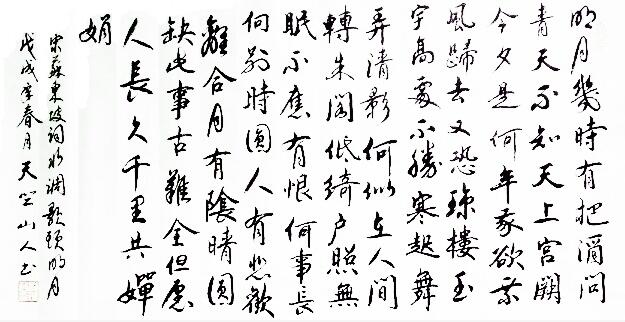 明月幾時有把酒問
青天不知天上宮闕
今夕是何年我欲乘
風歸去又恐瓊樓玉
宇高處不勝寒起舞
弄清影何似在人間
轉朱閣低綺戶照無
眠不應有恨何事長
向別時圓人有悲歡
離合月有陰晴圓
缺此事古難全但愿
人長久千里共嬋
娟
宋蘇東坡詞水調歌頭明月
戊戌年春月天山人书